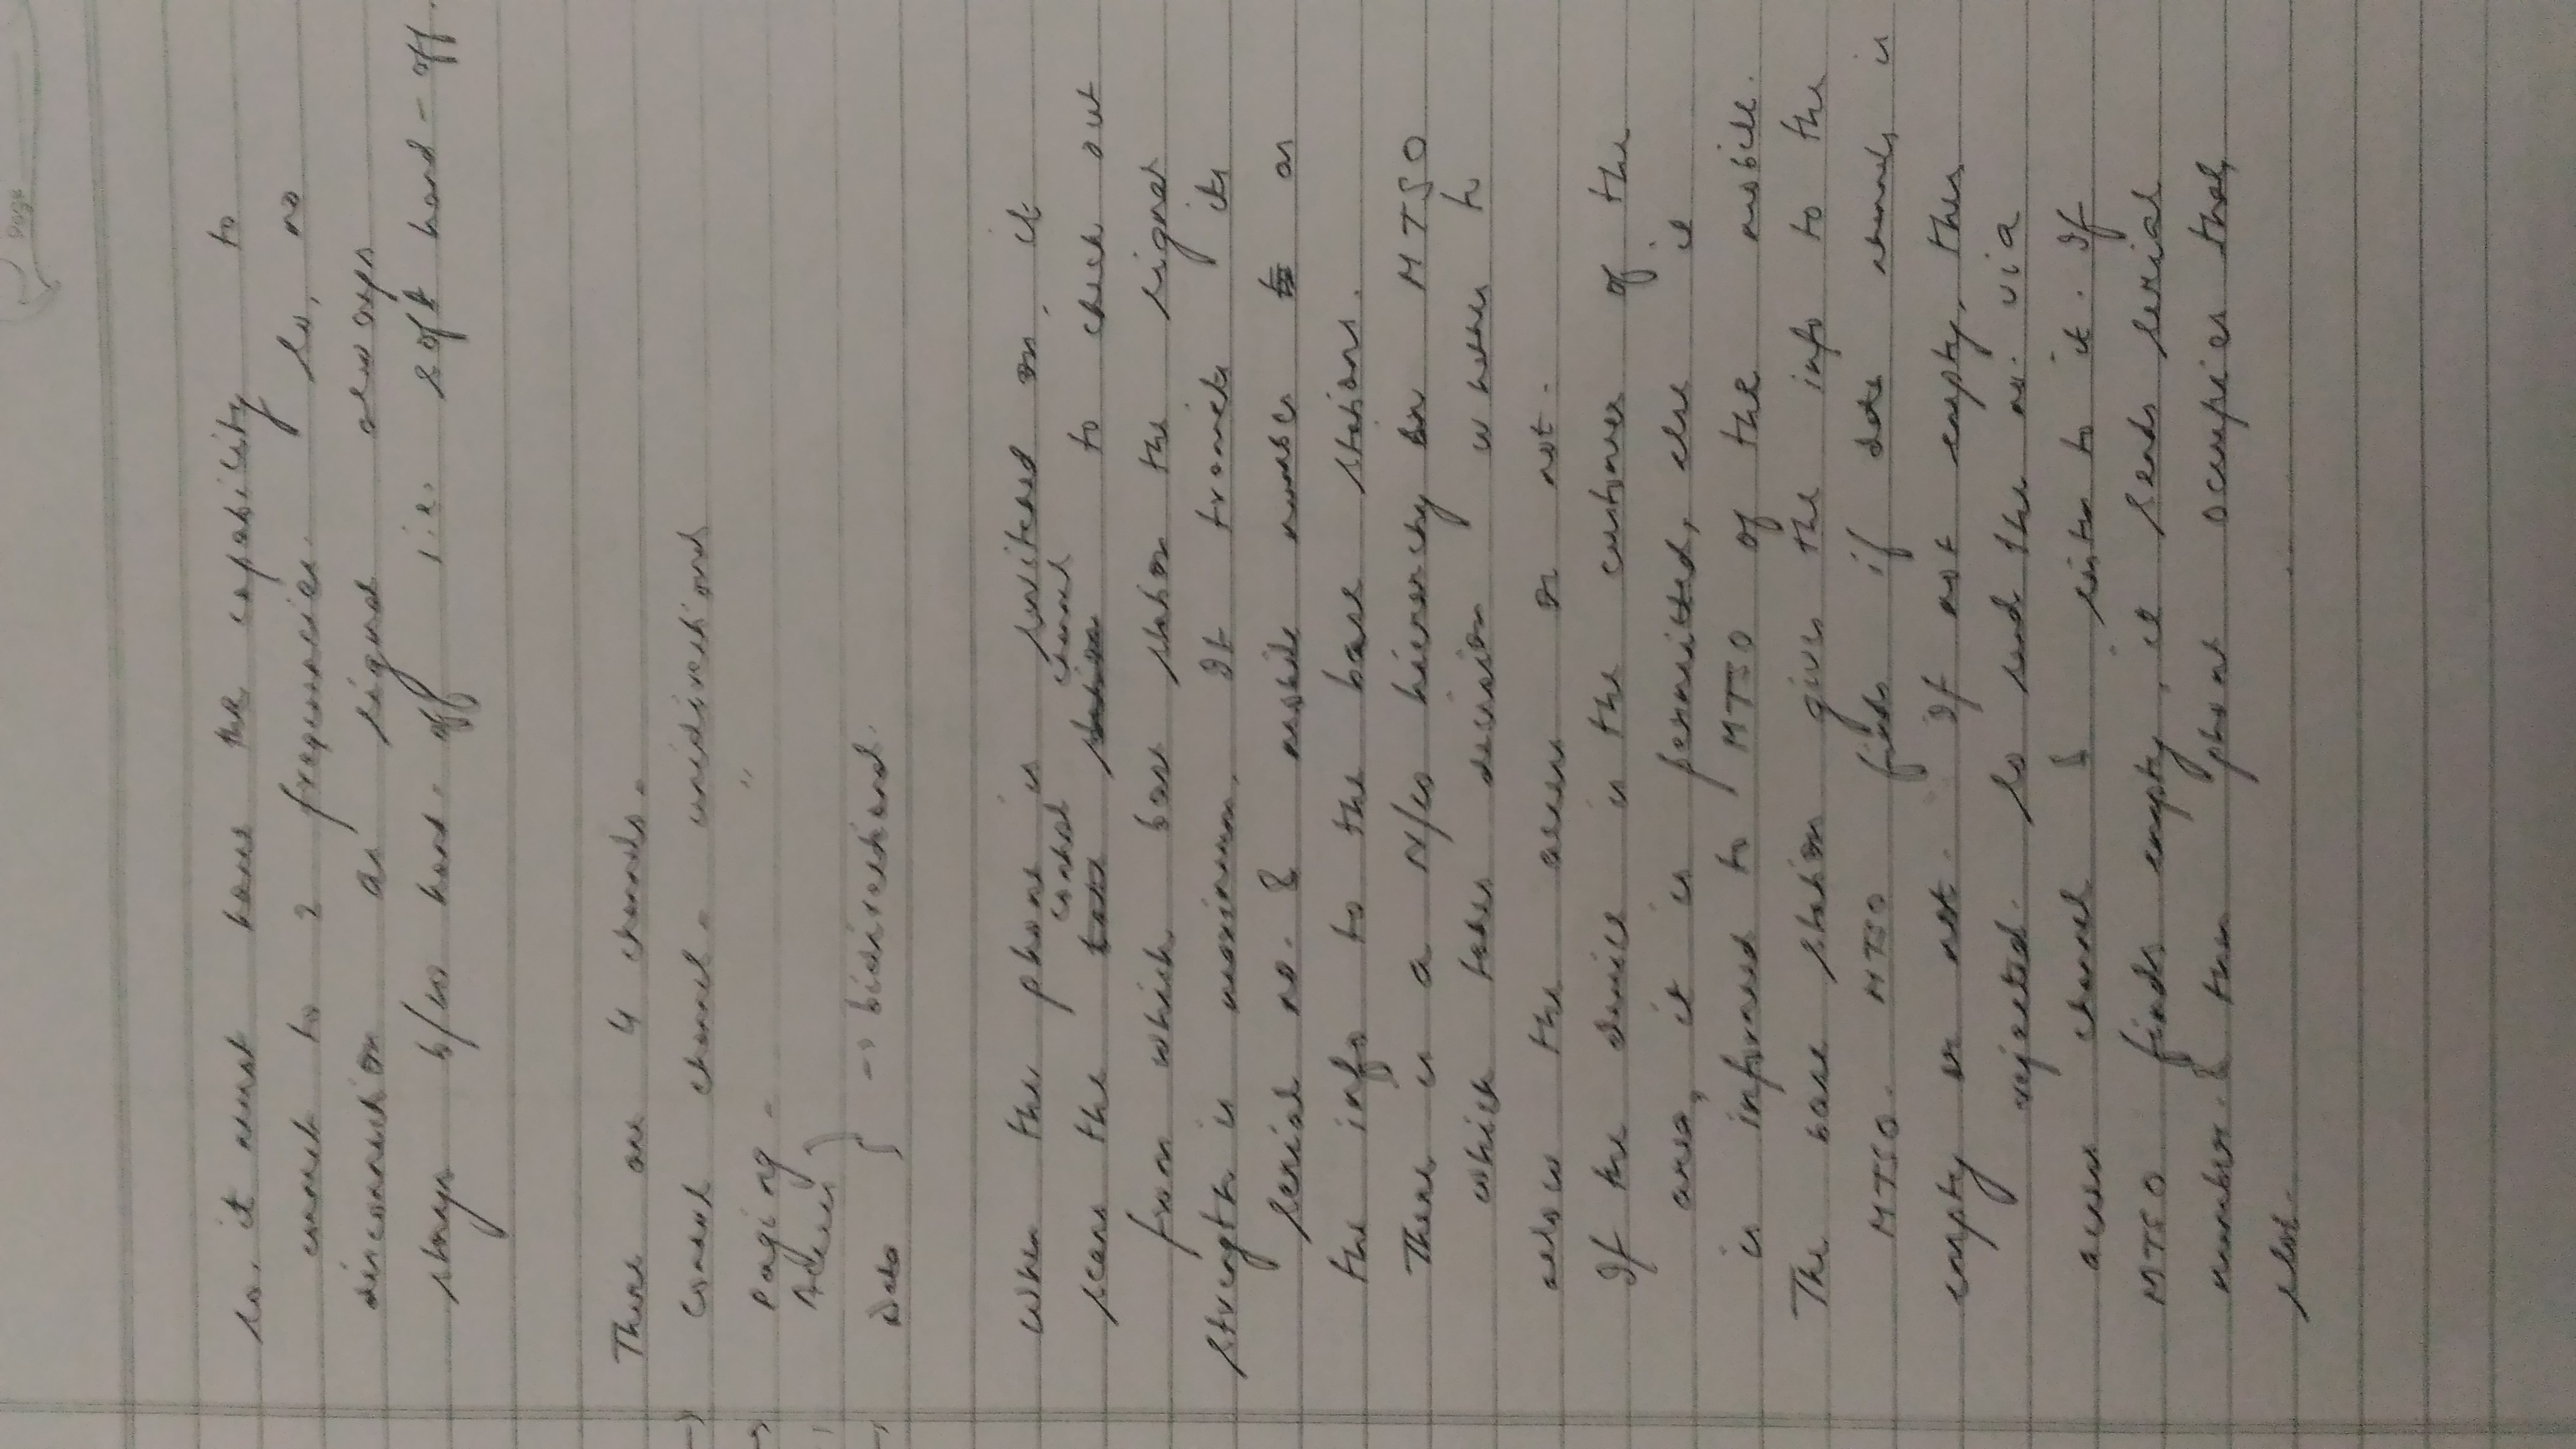 Page
So, it must have the capability to
connect to 2 frequencies. So, no
disconnection as signal always
stays b/w hand-off i.e. soft hand-off.
There are 4 channels.
→ Control channel - unidirectional
→ Paging - "
Access
→ Data } → bidirectional.
When the phone is switched on, it
control channel
scans the base station to check out
from which base station the signal
strength is maximum. It transmits its
serial no. & mobile number to as
the info to the base stations.
There is a N/w hierarchy in MTSO
which takes decision whether to
allow the access or not.
If the device is the customer of the
area, it is permitted, else it
is informed to MTSO of the mobile.
The base station gives the info to the
MTSO. MTSO finds if data channels is
empty or not. If not empty, then
rejected. So send the no. via
access channel & listen to it. If
MTSO finds empty, it sends serial
number & then phone occupies that
slot.